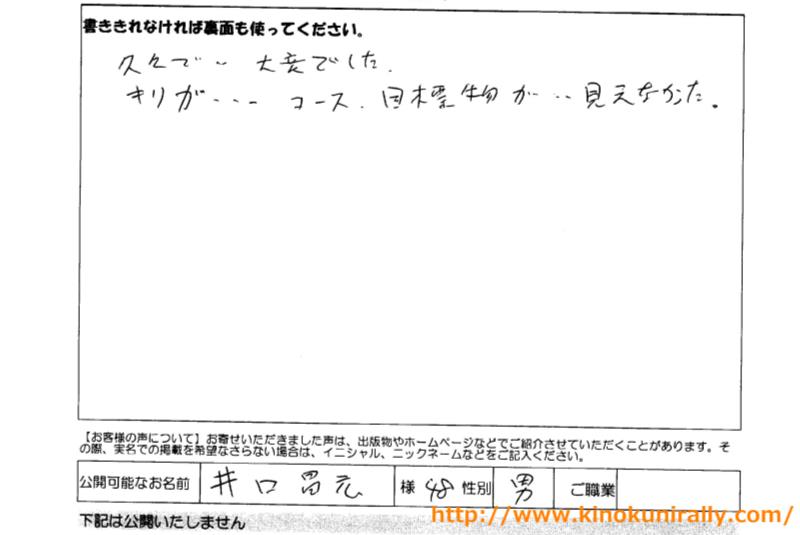 書ききれなければ裏面も使ってください。
久々で‥ 大変でした.
キリが・・・ コース、目標物が‥見えなかった。
【お客様の声について】お寄せいただきました声は、出版物やホームページなどでご紹介させていただくことがあります。そ
の際、実名での掲載を希望なさらない場合は、イニシャル、ニックネームなどをご記入ください。
公開可能なお名前 井口昌宏 様 48 性別 男 ご職業
下記は公開いたしません
http://www.kinokunirally.com/